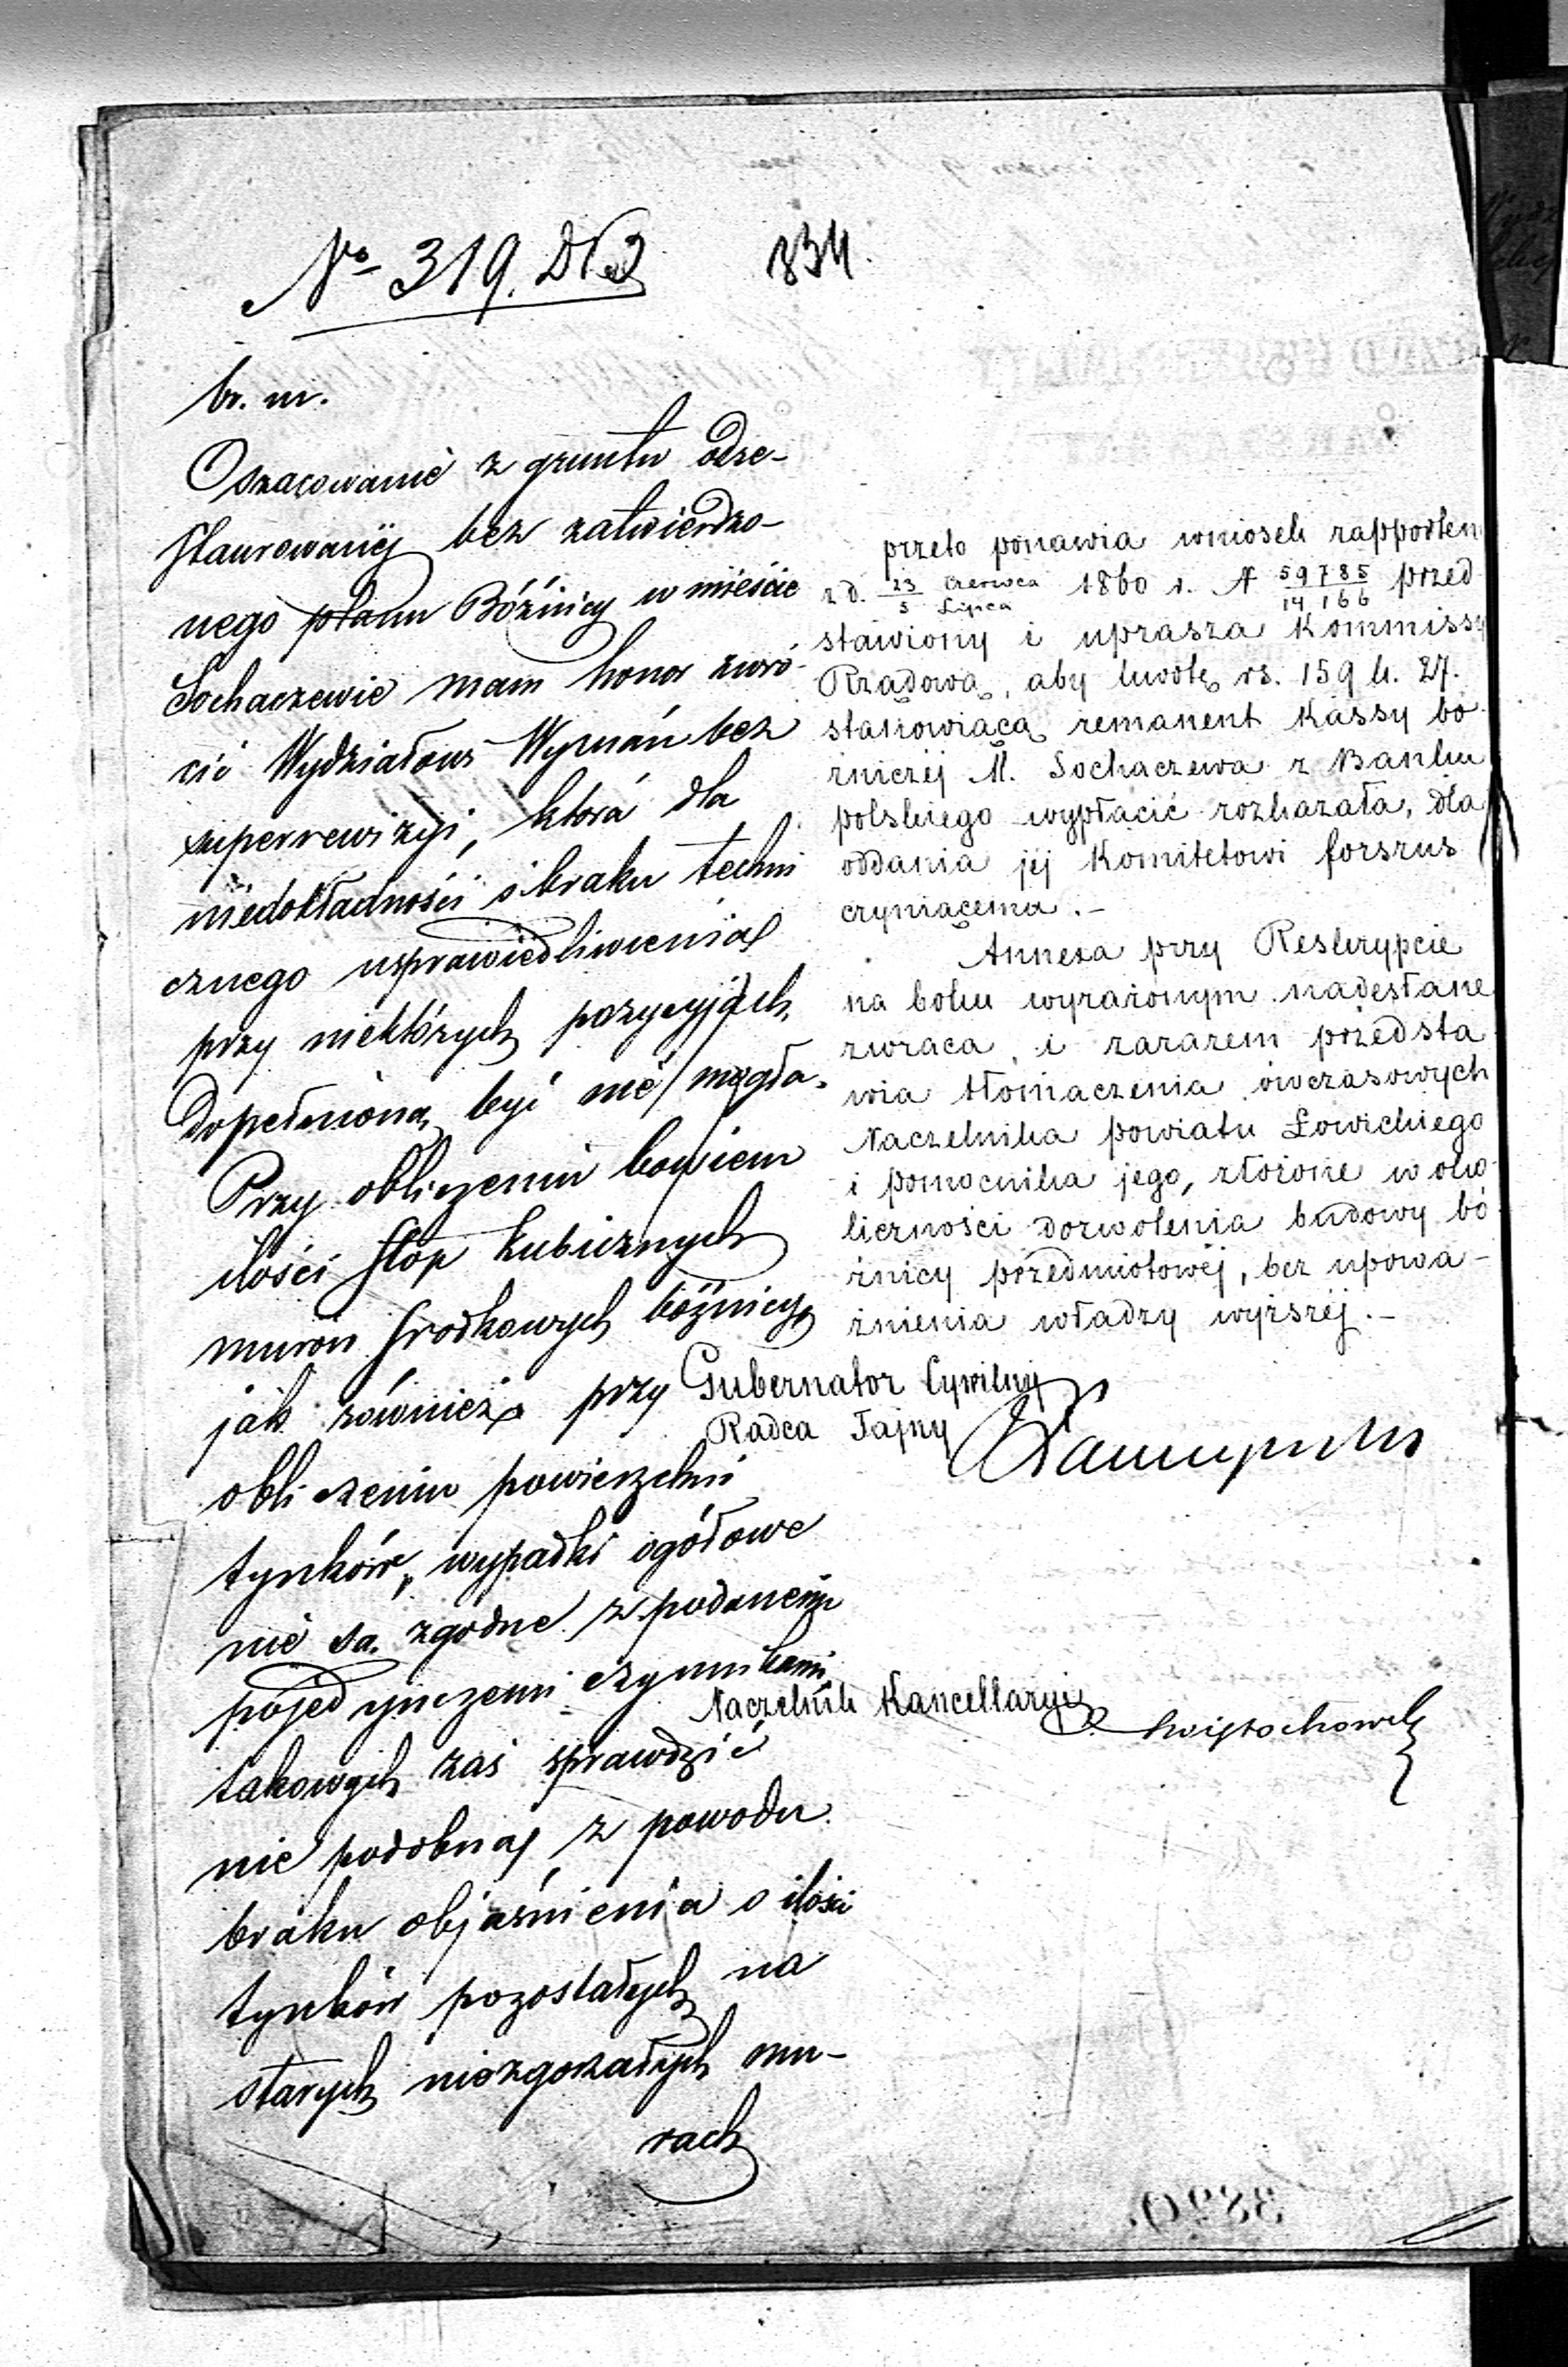 № 319. D.N.3
834.
br. m.
Oszacowanie z gruntu odre-
staurowanéj bez zatwierdzo-
nego planu Bóźnicy w mieście
Sochaczewie mam honor zwró-
cić Wydziałowi Wyznań bez
superrewizyi, która dla
niedokładności i braku techni
cznego usprawiedliwienia
przy niektórych pozycyjach,
dopełnioną być nie mogła.
Przy obliczeniu bowiem
ilości stóp kubicznych
murów środkowych bóźnicy,
jak również przy
obliczeniu powierzchni
tynków, wypadki ogółowe
nie są zgodne z podanemi
pojedynczemi czynnikami
takowych zaś sprawdzić
nie podobna z powodu
braku objaśnienia o ilości
tynków pozostałych na
starych niezgorzałych mu-
rach
przeto ponawia wniosek rapportem
z d. 23 Czerwca / 5 Lipca 1860 r. N 59785 / 14166 przed
stawiony i uprasza Kommissy
Rządową, aby kwotę rs. 159 k. 27.
stanowiącą remanent Kassy bó
żniczéj M. Sochaczewa z Banku
polskiego wypłacić rozkazała, dla
oddania jéj Komitetowi forszus
czyniącemu.-
Annexa przy Reskrypcie
na boku wyrażonym nadesłane
zwraca, i zarazem przedsta
wia tłómaczenia ówczasowych
Naczelnika powiatu Łowickiego
i pomocnika jego, złożone w oko
liczności dozwolenia budowy bó
żnicy przedmiotowéj, bez upowa-
żnienia władzy wyższéj.-
Gubernator Cywilny
Radca Tajny
Naczelnik Kancellaryi
Świętochowski
3820.